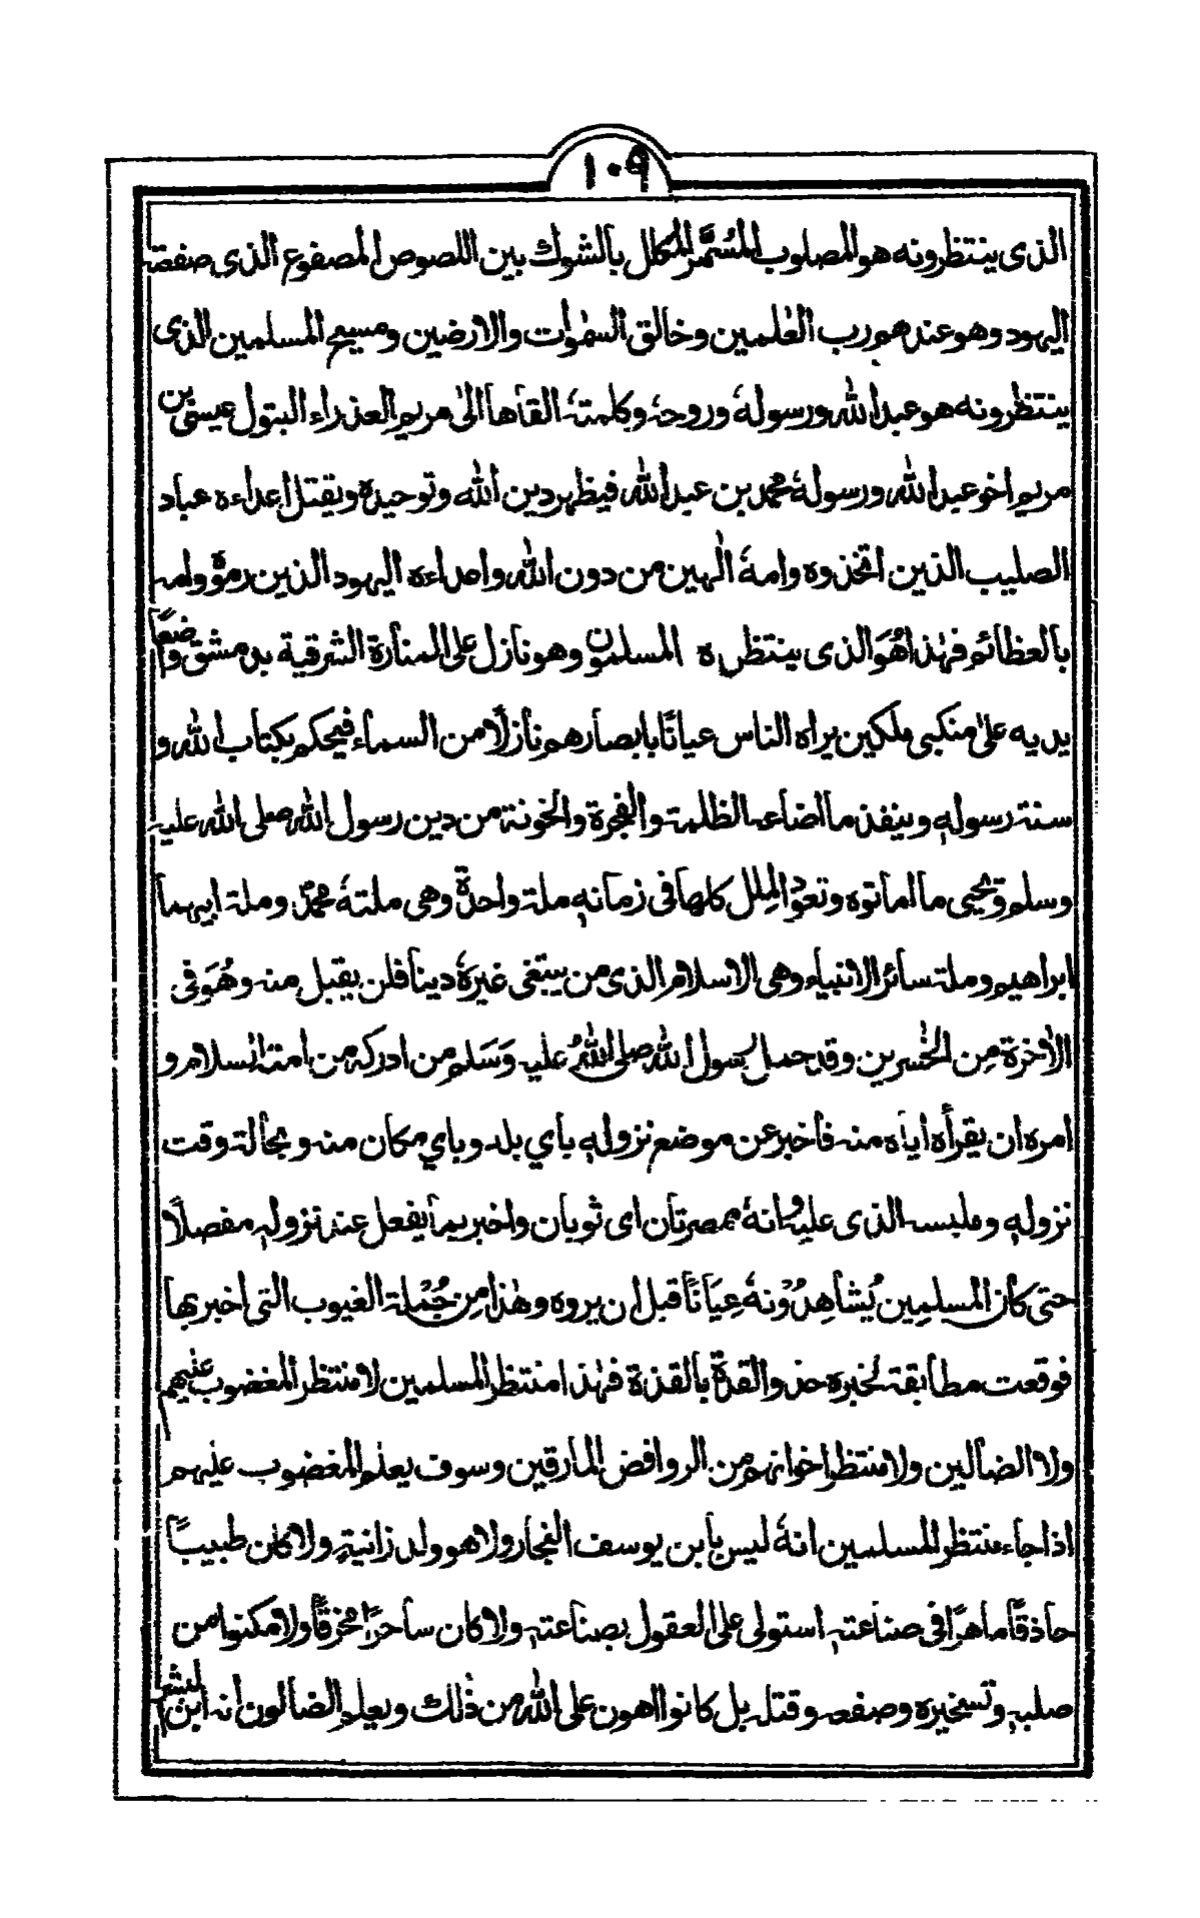 ١٠٩
الذى ينتظرونه هو المصلوب المُسمَّر المكلل بالشوك بين اللصوص المصفوع الذي صفعته
اليهود وهو عندهم رب العٰلمين وخالق السمٰوات والارضين ومسيح المسلمين الذى
ينتظرونه هو عبد الله ورسولهٗ وروحهٗ وكلمتهٗ القاها الىٰ مريم العذراء البتول عيسىٰ بن
مريم اخو عبد الله ورسولهٗ محمد بن عبد الله فيظهر دين الله وتوحيدهٗ ويقتل اعداءه عباد
الصليب الذين اتخذوه وامهٗ الٰهين من دون الله واعداءه اليهود الذين رموهٗ وامه
بالعظائم فهٰذا هُوَ الذى ينتظره المسلمون وهو نازل على المنارة الشرقية بدمشق واضعًا
يديه علىٰ منكبى ملكين يراه الناس عيانًا بابصارهم نازلًا من السماء فيحكم بكتاب الله و
سنة رسولهٖ وينفذ ما اضاعه الظلمة والفجرة والخونة من دين رسول الله صلى الله عليه
وسلم ويحيى ما اماتوه وتعود المِلل كلها فى زمانهٖ ملة واحدة وهى ملتهٗ محمدٌ وملة ابيهما
ابراهيم وملة سائر الانبياء وهى الاسلام الذى من يبتغى غيرهٗ دينا فلن يقبل منه وهُوَ فى
الاٰخرة مِن الخٰسرين وقد حمل رسول الله صلى اللهُ عليه وَسَلم من ادركه من امته السلام و
امره ان يقرأه اياه منه فاخبر عن موضع نزولهٖ باي بلد وباي مكان منه وبحالة وقت
نزولهٖ وملبسه الذى عليه وانهٗ ممصرتان اى ثوبان واخبر بما يفعل عند نزولهٖ مفصلًا
حتى كان المسلمِين يُشاهِدُوْنهٗ عِيَانًا قبل ان يروه وهٰذا مِن جُمْلة الغيوب التى اخبر بها
فوقعت مطابقة لخبره حذو القذة بالقذة فهٰذا منتظر المسلمين لا منتظر المغضوب عليهم
ولا الضالين ولا منتظر اخوانهم من الروافض المارقين وسوف يعلم المغضوب عليهم
اذا جاء منتظر المسلمين انهٗ ليس بابن يوسف النجار ولا هو ولد زانيةٍ ولا كان طبيبًا
حاذقًا ماهرًا فى صناعتهٖ استولى على العقول بصناعتهٖ ولا كان ساحرًا مخرقًا ولا مكنوا من
صلبهٖ وتسخيره وصفعه وقتله بل كانوا اهون على الله من ذٰلك ويعلم الضالون انه ابن البشر